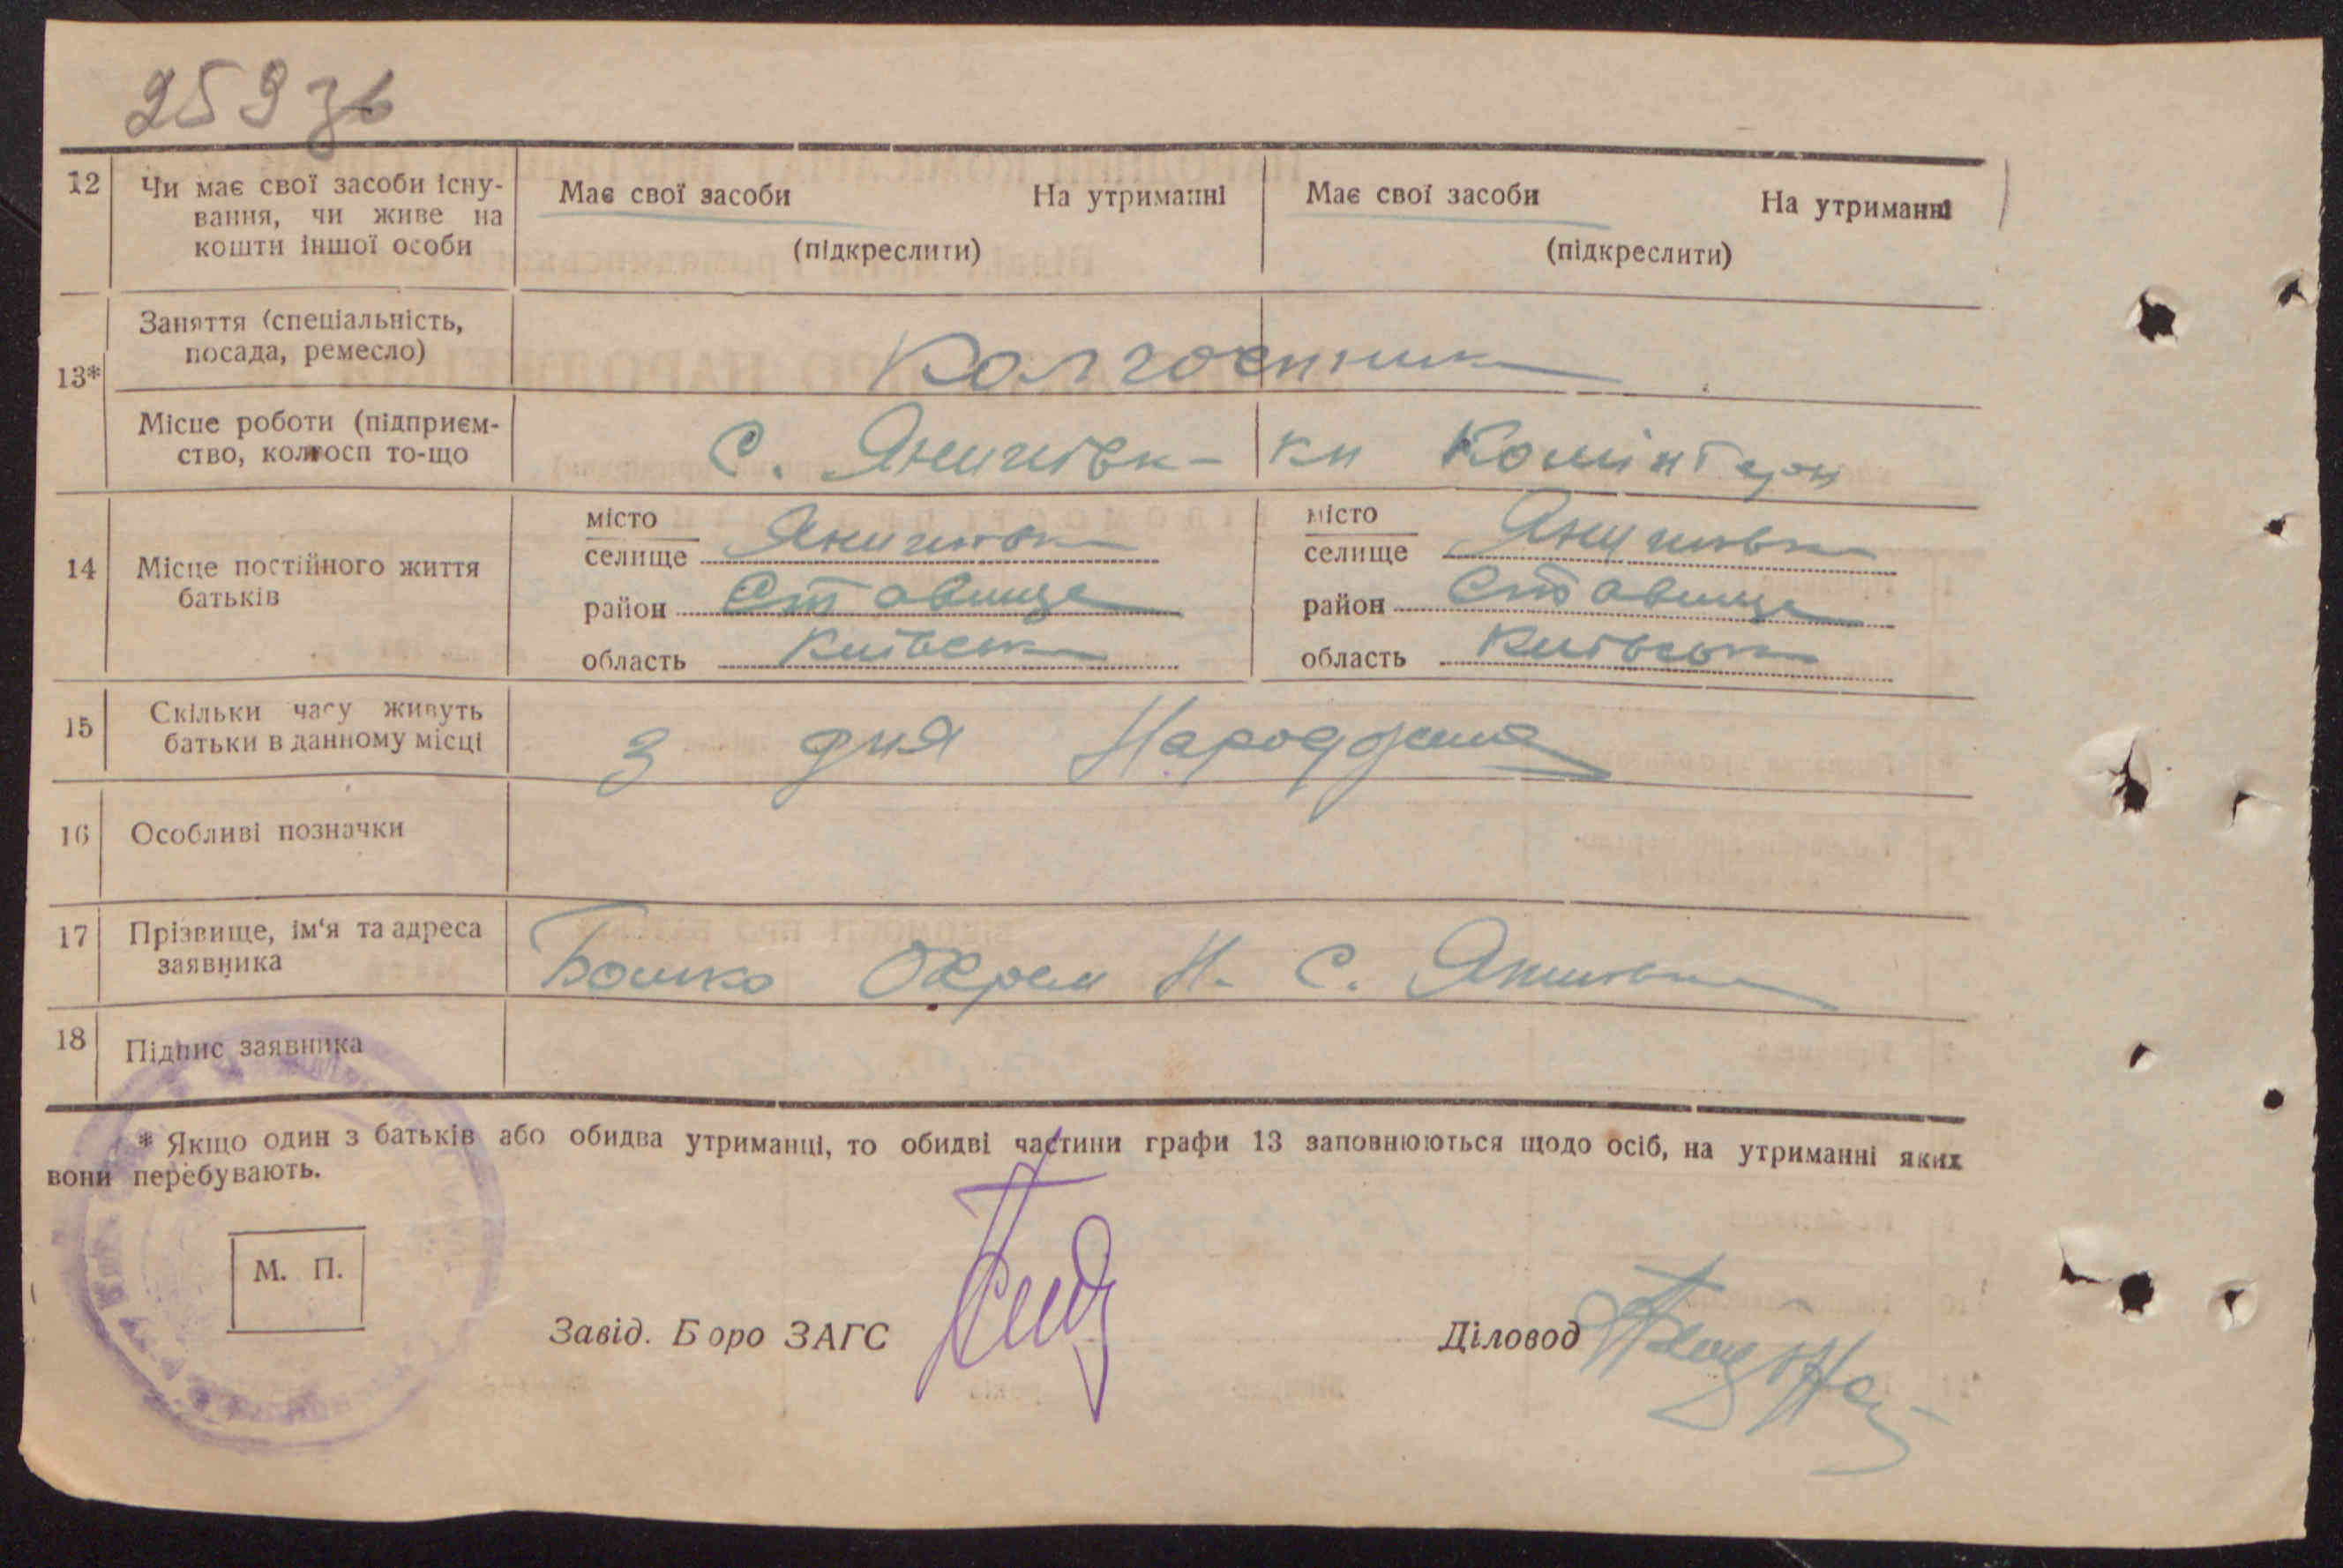 259 зв
12 Чи має свої засоби існу- Має свої засоби На утриманні Має свої засоби На утриманні
вання, чи живе на
кошти іншої особи (підкреслити) (підкреслити)
13* Заняття (спеціальність,
посада, ремесло) Колгоспник
Місце роботи (підприєм-
ство, колгосп то-що С. Янишівк- кп Комінтерн
14 Місце постійного життя
батьків
місто місто
селище Янишівка селище Янишівка
район Ставище район Ставище
область Київська область Київська
15 Скільки часу живуть
батьки в данному місці З дня Народження
16 Особливі позначки
17 Прізвище, ім'я та адреса
заявника Бошко Охрем Н. С. Янишівка
18 Підпис заявника
* Якщо один з батьків або обидва утриманці, то обидві частини графи 13 заповнюються щодо осіб, на утриманні яких
вони перебувають.
М. П.
Завід. Б оро ЗАГС Діловод